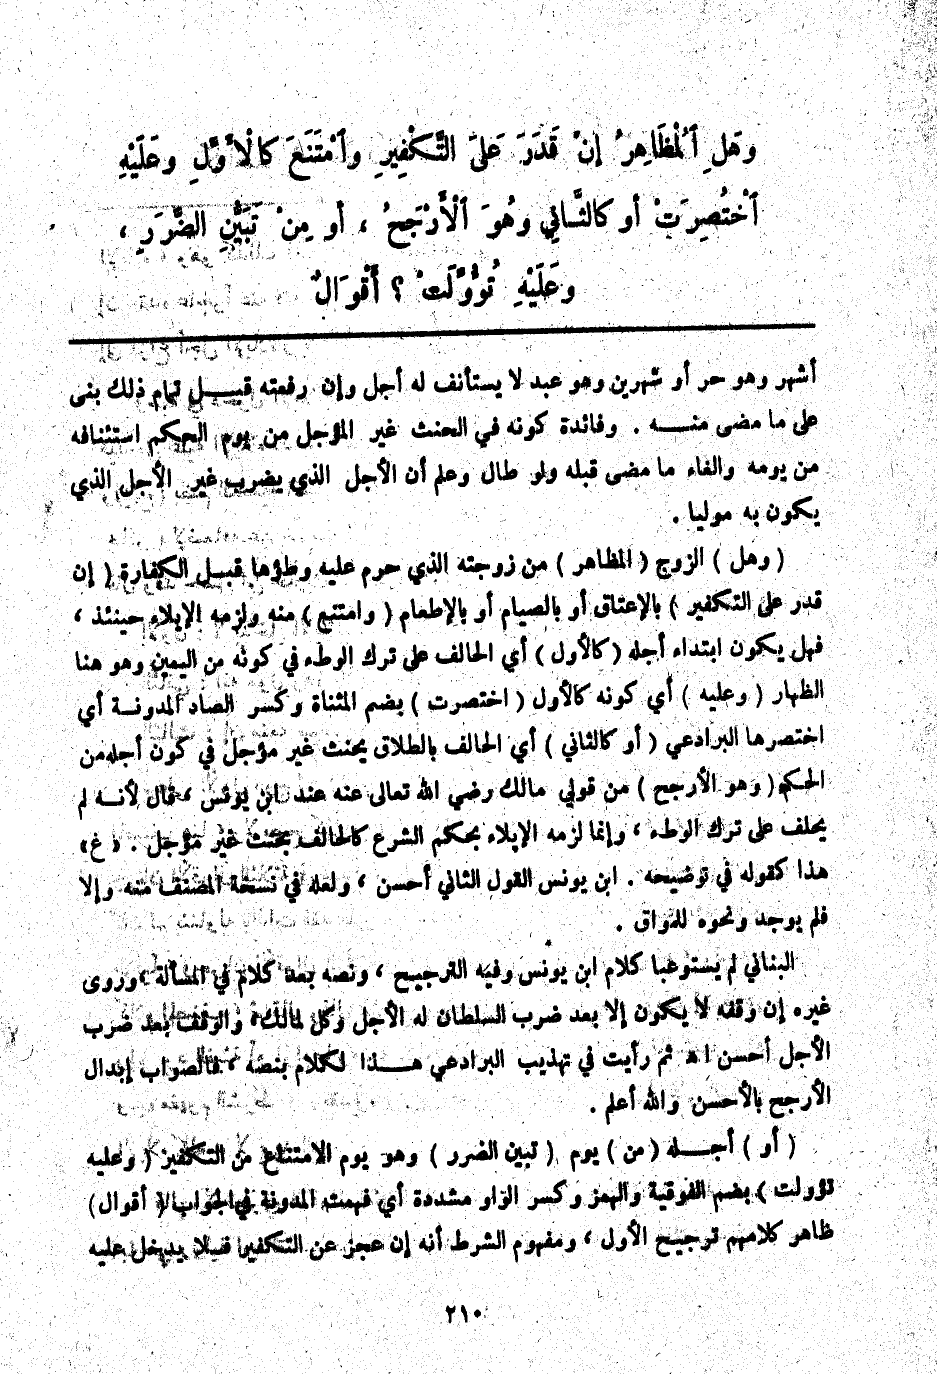 وَهَلِ ٱلْمُظَاهِرُ إِنْ قَدَرَ عَلَى التَّكْفِيرِ وٱمْتَنَعَ كالْأَوَّلِ وعَلَيْهِ
ٱخْتُصِرَتْ أو كالثَّانِي وهُوَ ٱلْأَرْجَحُ ، أو مِنْ تَبَيُّنِ الضَّرَرِ ،
وعَلَيْهِ تُؤُوِّلَتْ ؟ أَقْوَالٌ
أشهر وهو حر أو شهرين وهو عبد لا يستأنف له أجل وإن رفعته قبـــل تمام ذلك بنى
على ما مضى منـــه . وفائدة كونه في الحنث غير المؤجل من يوم الحكم استئنافه
من يومه والفاء ما مضى قبله ولو طال وعلم أن الأجل الذي يضرب غير الأجل الذي
يكون به موليا .
( وهل ) الزوج ( المظاهر ) من زوجته الذي حرم عليه وطؤها قبـل الكفارة ( إن
قدر على التكفير ) بالإعتاق أو بالصيام أو بالإطعام ( وامتنع ) منه ولزمه الإيلاء حينئذ ،
فهل يكون ابتداء أجله ( كالأول ) أي الحالف على ترك الوطء في كونه من اليمين وهو هنا
الظهار ( وعليه ) أي كونه كالأول ( اختصرت ) بضم المثناة وكسر الصاد المدونـة أي
اختصرها البرادعي ( أو كالثاني ) أي الحالف بالطلاق يحنث غير مؤجل في كون أجله من
الحكم ( وهو الأرجح ) من قولي مالك رضي الله تعالى عنه عند ابن يونس ، قال لأنـه لم
يحلف على ترك الوطء ، وإنما لزمه الإيلاء بحكم الشرع كالحالف بحنث غير مؤجل . « غ »
هذا كقوله في توضيحه . ابن يونس القول الثاني أحسن ، ولعله في نسخة المصنف منه وإلا
فلم يوجد ونحوه للمواق .
البناني لم يستوعبا كلام ابن يونس وفيه الترجيح ، ونصه بعد كلام في المسألة ، وروى
غيره إن وقفه لا يكون إلا بعد ضرب السلطان له الأجل وكل لمالك ، والوقف بعد ضرب
الأجل أحسن ا هـ ثم رأيت في تهذيب البرادعي هـــذا لكلام بنصه ، فالصواب إبدال
الأرجح بالأحسن والله أعلم .
( أو ) أجـــله ( من ) يوم ( تبين الضرر ) وهو يوم الامتناع من التكفير ( وعليه
تؤولت ) بضم الفوقية والهمز وكسر الواو مشددة أي فهمت المدونة في الجواب ( أقوال )
ظاهر كلامهم ترجيح الأول ، ومفهوم الشرط أنه إن عجز عن التكفير فلا يدخل عليه
٢١٠